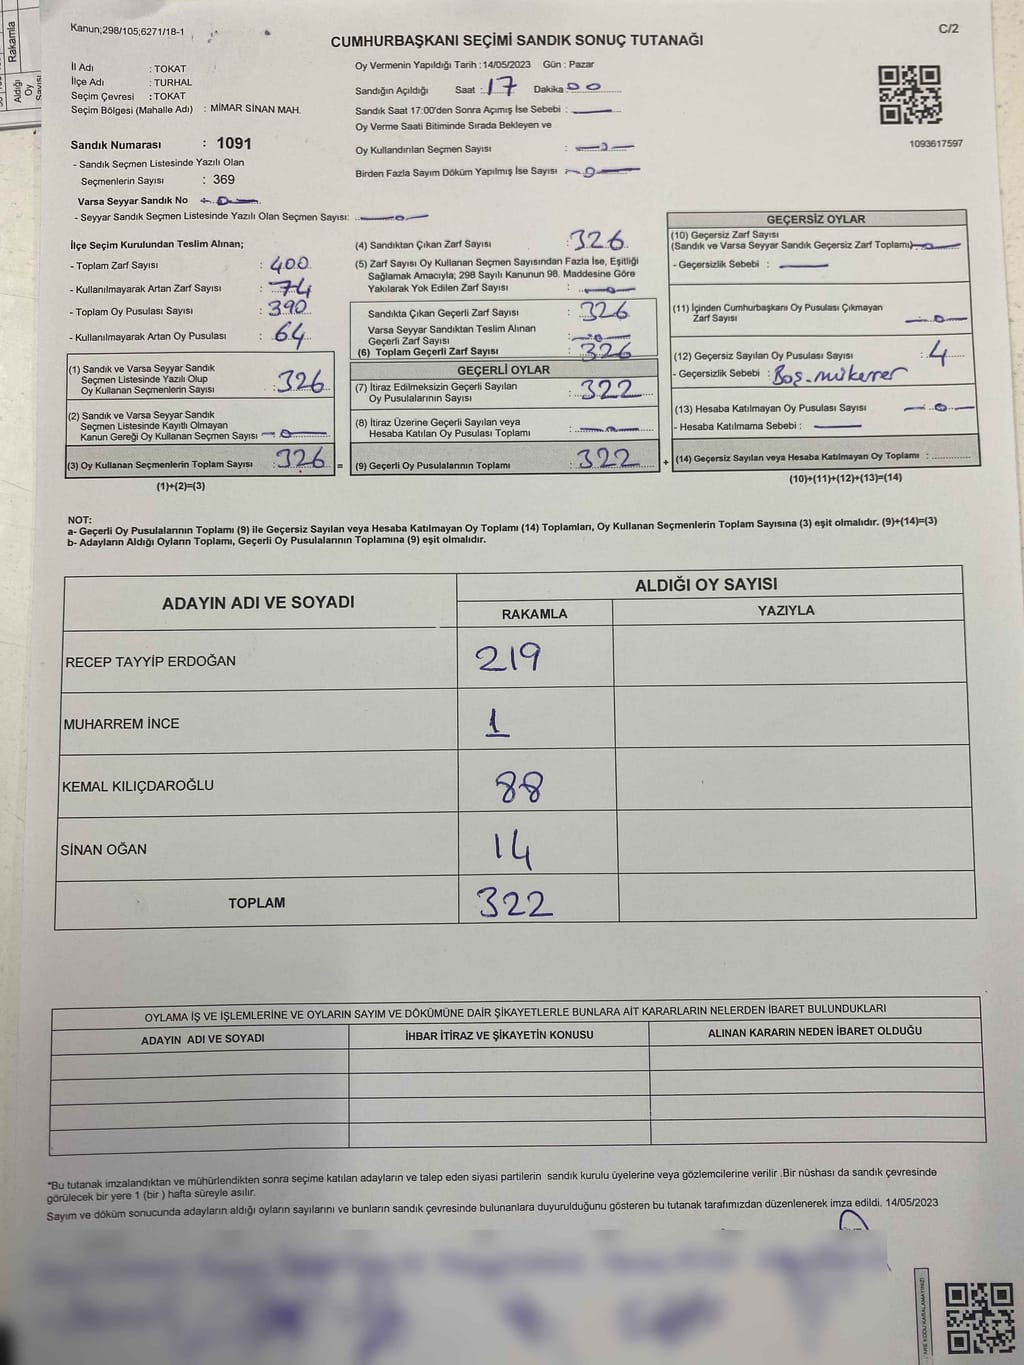 Rakamla
Aldığı
Oy
Kanun;298/105;6271/18-1
C/2
CUMHURBAŞKANI SEÇİMİ SANDIK SONUÇ TUTANAĞI
İl Adı : TOKAT
İlçe Adı : TURHAL
Seçim Çevresi : TOKAT
Seçim Bölgesi (Mahalle Adı) : MİMAR SİNAN MAH.
Oy Vermenin Yapıldığı Tarih :14/05/2023 Gün : Pazar
Sandığın Açıldığı Saat :17 Dakika 00
Sandık Saat 17:00'den Sonra Açımış İse Sebebi :
Oy Verme Saati Bitiminde Sırada Bekleyen ve
Oy Kullandırılan Seçmen Sayısı : -0-
Birden Fazla Sayım Döküm Yapılmış İse Sayısı -0-
1093617597
Sandık Numarası : 1091
- Sandık Seçmen Listesinde Yazılı Olan
Seçmenlerin Sayısı : 369
Varsa Seyyar Sandık No -0-
- Seyyar Sandık Seçmen Listesinde Yazılı Olan Seçmen Sayısı: -0-
İlçe Seçim Kurulundan Teslim Alınan;
- Toplam Zarf Sayısı : 400
- Kullanılmayarak Artan Zarf Sayısı : 74
- Toplam Oy Pusulası Sayısı : 390
- Kullanılmayarak Artan Oy Pusulası : 64
(1) Sandık ve Varsa Seyyar Sandık
Seçmen Listesinde Yazılı Olup
Oy Kullanan Seçmenlerin Sayısı : 326
(2) Sandık ve Varsa Seyyar Sandık
Seçmen Listesinde Kayıtlı Olmayan
Kanun Gereği Oy Kullanan Seçmen Sayısı -0-
(3) Oy Kullanan Seçmenlerin Toplam Sayısı : 326 =
(1)+(2)=(3)
(4) Sandıktan Çıkan Zarf Sayısı : 326
(5) Zarf Sayısı Oy Kullanan Seçmen Sayısından Fazla İse, Eşitliği
Sağlamak Amacıyla; 298 Sayılı Kanunun 98. Maddesine Göre
Yakılarak Yok Edilen Zarf Sayısı : -0-
Sandıkta Çıkan Geçerli Zarf Sayısı : 326
Varsa Seyyar Sandıktan Teslim Alınan
Geçerli Zarf Sayısı : -0-
(6) Toplam Geçerli Zarf Sayısı : 326
GEÇERLİ OYLAR
(7) İtiraz Edilmeksizin Geçerli Sayılan
Oy Pusulalarının Sayısı : 322
(8) İtiraz Üzerine Geçerli Sayılan veya
Hesaba Katılan Oy Pusulası Toplamı : -0-
(9) Geçerli Oy Pusulalarının Toplamı : 322 +
GEÇERSİZ OYLAR
(10) Geçersiz Zarf Sayısı
(Sandık ve Varsa Seyyar Sandık Geçersiz Zarf Toplamı) -0-
- Geçersizlik Sebebi :
(11) İçinden Cumhurbaşkanı Oy Pusulası Çıkmayan
Zarf Sayısı -0-
(12) Geçersiz Sayılan Oy Pusulası Sayısı : 4
- Geçersizlik Sebebi : Boş-mükerrer
(13) Hesaba Katılmayan Oy Pusulası Sayısı -0-
- Hesaba Katılmama Sebebi :
(14) Geçersiz Sayılan veya Hesaba Katılmayan Oy Toplamı :
(10)+(11)+(12)+(13)=(14)
NOT:
a- Geçerli Oy Pusulalarının Toplamı (9) ile Geçersiz Sayılan veya Hesaba Katılmayan Oy Toplamı (14) Toplamları, Oy Kullanan Seçmenlerin Toplam Sayısına (3) eşit olmalıdır. (9)+(14)=(3)
b- Adayların Aldığı Oyların Toplamı, Geçerli Oy Pusulalarının Toplamına (9) eşit olmalıdır.
ADAYIN ADI VE SOYADI
ALDIĞI OY SAYISI
RAKAMLA YAZIYLA
RECEP TAYYİP ERDOĞAN 219
MUHARREM İNCE 1
KEMAL KILIÇDAROĞLU 88
SİNAN OĞAN 14
TOPLAM 322
OYLAMA İŞ VE İŞLEMLERİNE VE OYLARIN SAYIM VE DÖKÜMÜNE DAİR ŞİKAYETLERLE BUNLARA AİT KARARLARIN NELERDEN İBARET BULUNDUKLARI
ADAYIN ADI VE SOYADI İHBAR İTİRAZ VE ŞİKAYETİN KONUSU ALINAN KARARIN NEDEN İBARET OLDUĞU
*Bu tutanak imzalandıktan ve mühürlendikten sonra seçime katılan adayların ve talep eden siyasi partilerin sandık kurulu üyelerine veya gözlemcilerine verilir .Bir nüshası da sandık çevresinde
görülecek bir yere 1 (bir ) hafta süreyle asılır.
Sayım ve döküm sonucunda adayların aldığı oyların sayılarını ve bunların sandık çevresinde bulunanlara duyurulduğunu gösteren bu tutanak tarafımızdan düzenlenerek imza edildi. 14/05/2023